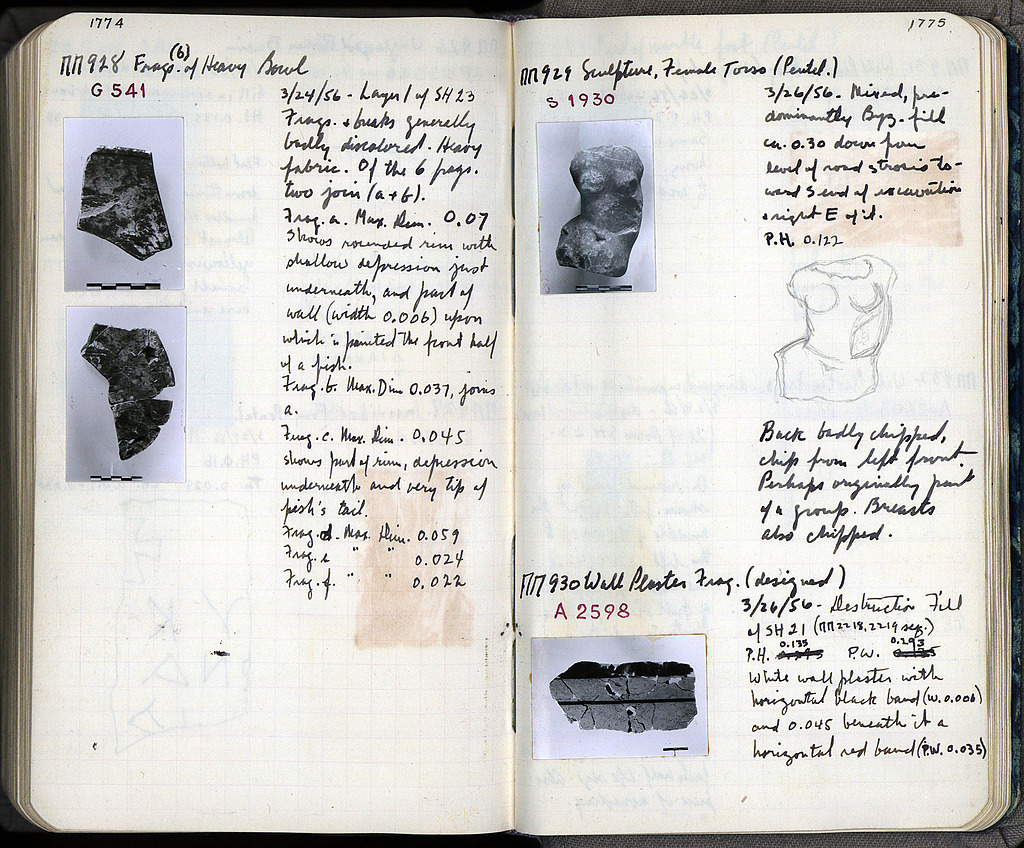 1774
ΠΠ928 Frags. (6) of Heavy Bowl
G 541
3/24/56 - Layer 1 of SH 23
Frags. + breaks generally
badly discolored. Heavy
fabric. Of the 6 frags.
two join (a+b).
Frag. a. Max. Dim. 0.07
Shows rounded rim with
shallow depression just
underneath, and part of
wall (width 0.006) upon
which is painted the front half
of a fish.
Frag. b. Max. Dim 0.037, joins
a.
Frag. c. Max. Dim. 0.045
shows part of rim, depression
underneath and very tip of
fish's tail.
Frag. d. Max. Dim. 0.059
Frag. e " " 0.024
Frag. f. " " 0.022
1775
ΠΠ929 Sculpture, Female Torso (Pentel.)
S 1930
3/26/56 - Mixed, pre-
dominantly Byz. fill
ca. 0.30 down from
level of road strosis to-
ward S end of excavation
+ right E of it.
P.H. 0.122
Back badly chipped,
chip from left front.
Perhaps originally part
of a group. Breasts
also chipped.
ΠΠ930 Wall Plaster Frag. (designed)
A 2598
3/26/56 - Destruction Fill
of SH 21 (ΠΠ2218, 2219 seq.)
P.H. 0.135 P.W. 0.293
White wall plaster with
horizontal black band (W. 0.006)
and 0.045 beneath it a
horizontal red band (P.W. 0.035)